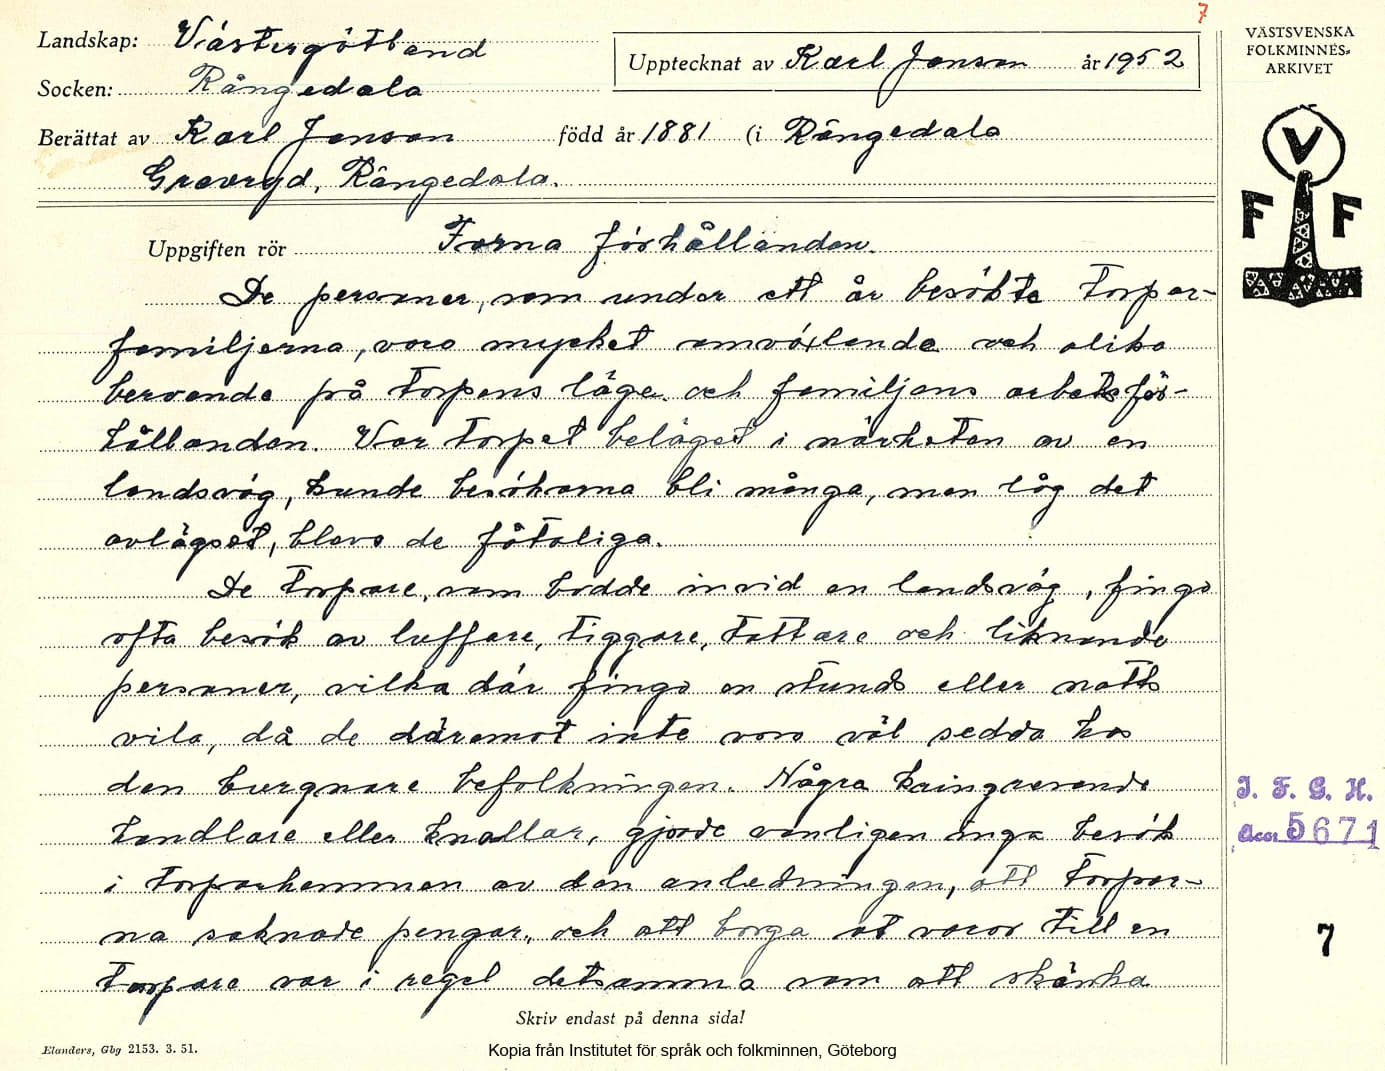 7
Landskap: Västergötland
Socken: Rångedala
Upptecknat av Karl Janson år 1952
Berättat av Karl Janson född år 1881 (i Rångedala
Gravryd, Rångedala.
Uppgiften rör Forna förhållanden.
De personer, som under ett år besökte torpar-
familjerna, voro mycket omväxlande och olika
beroende på torpens läge och familjens arbetsför-
hållanden. Var torpet beläget i närheten av en
landsväg, kunde besökarna bli många, men låg det
avlägset, blevo de fåtaliga.
De torpare, som bodde invid en landsväg, fingo
ofta besök av luffare, tiggare, tattare och liknande
personer, vilka där fingo en stunds eller natts
vila, då de däremot inte voro väl sedda hos
den burgnare befolkningen. Några kringresande
handlare eller knallar, gjorde vanligen inga besök
i torparhemmen av den anledningen, att torpar-
na saknade pengar, och att borga ut varor till en
torpare var i regel detsamma som att skänka
Skriv endast på denna sida!
Elanders, Gbg 2153. 3. 51.
Kopia från Institutet för språk och folkminnen, Göteborg
VÄSTSVENSKA
FOLKMINNES-
ARKIVET
V
F F
I. F. G. H.
Acc. 5671
7